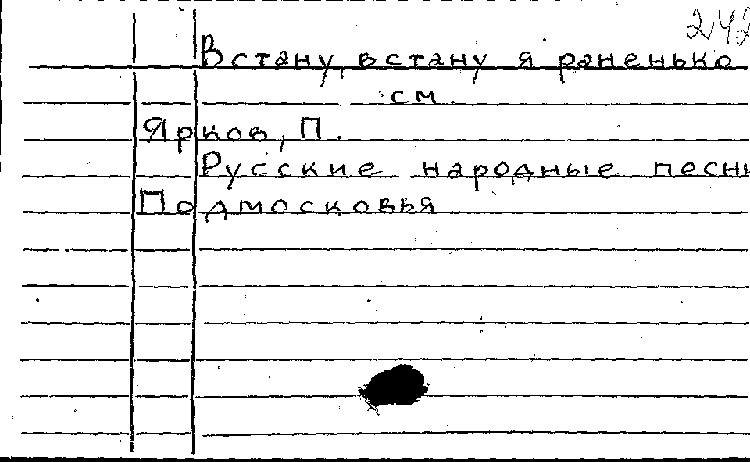 242
Встану, встану я раненько
см.
Ярков, П.
Русские народные песни
Подмосковья